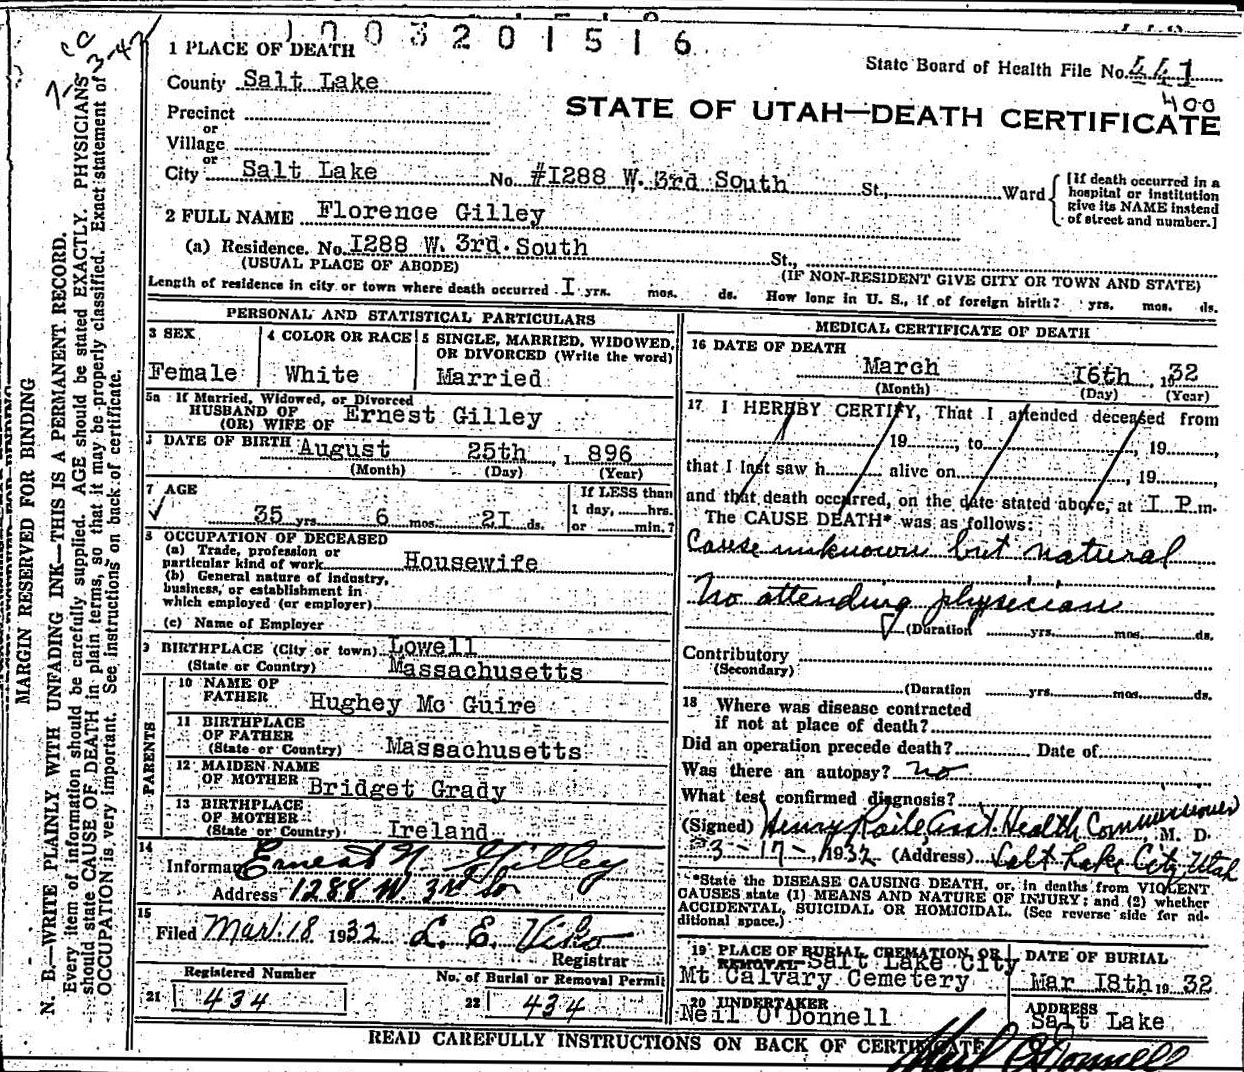 1003201516
7-3-42
State Board of Health File No. 441
400
STATE OF UTAH—DEATH CERTIFICATE
1 PLACE OF DEATH
County Salt Lake
Precinct
or
Village
or
City Salt Lake No. #I288 W. 3rd South St., Ward
[If death occurred in a
hospital or institution
give its NAME instead
of street and number.]
2 FULL NAME Florence Gilley
(a) Residence. No. I288 W. 3rd. South St.,
(USUAL PLACE OF ABODE) (IF NON-RESIDENT GIVE CITY OR TOWN AND STATE)
Length of residence in city or town where death occurred I yrs. mos. ds. How long in U. S., if of foreign birth? yrs. mos. ds.
PERSONAL AND STATISTICAL PARTICULARS
3 SEX
Female
4 COLOR OR RACE
White
5 SINGLE, MARRIED, WIDOWED,
OR DIVORCED (Write the word)
Married
5a If Married, Widowed, or Divorced
HUSBAND OF
(OR) WIFE OF Ernest Gilley
DATE OF BIRTH August 25th, 1896
(Month) (Day) (Year)
7 AGE
35 yrs 6 mos. 2I ds.
If LESS than
1 day, hrs.
or min.?
8 OCCUPATION OF DECEASED
(a) Trade, profession or
particular kind of work Housewife
(b) General nature of industry,
business, or establishment in
which employed (or employer)
(c) Name of Employer
9 BIRTHPLACE (City or town) Lowell
(State or Country) Massachusetts
PARENTS
10 NAME OF
FATHER Hughey Mc Guire
11 BIRTHPLACE
OF FATHER
(State or Country) Massachusetts
12 MAIDEN NAME
OF MOTHER Bridget Grady
13 BIRTHPLACE
OF MOTHER
(State or Country) Ireland
14
Informant Ernest N. Gilley
Address 1288 W. 3rd So
15
Filed Mar. 18 1932 L. E. Viko
Registrar
Registered Number
21 434
No. of Burial or Removal Permit
22 434
MEDICAL CERTIFICATE OF DEATH
16 DATE OF DEATH
March I6th, 1932
(Month) (Day) (Year)
17 I HEREBY CERTIFY, That I attended deceased from
19, to , 19,
that I last saw h alive on , 19,
and that death occurred, on the date stated above, at I P.m.
The CAUSE DEATH* was as follows:
Cause unknown but natural
No attending physician
(Duration yrs. mos. ds.
Contributory
(Secondary)
(Duration yrs. mos. ds.
18 Where was disease contracted
if not at place of death?
Did an operation precede death? Date of
Was there an autopsy? no
What test confirmed diagnosis?
(Signed) Henry Raile, Asst. Health Commissioner, M. D.
3-17-, 1932 (Address) Salt Lake City, Utah
*State the DISEASE CAUSING DEATH, or, in deaths from VIOLENT
CAUSES state (1) MEANS AND NATURE OF INJURY; and (2) whether
ACCIDENTAL, SUICIDAL OR HOMICIDAL. (See reverse side for ad-
ditional space.)
19 PLACE OF BURIAL, CREMATION, OR
REMOVAL Salt Lake City
Mt Calvary Cemetery
DATE OF BURIAL
Mar I8th 1932
20 UNDERTAKER
Neil O'Donnell
ADDRESS
Salt Lake
Neil O'Donnell
READ CAREFULLY INSTRUCTIONS ON BACK OF CERTIFICATE
MARGIN RESERVED FOR BINDING
N. B.—WRITE PLAINLY WITH UNFADING INK—THIS IS A PERMANENT RECORD.
Every item of information should be carefully supplied. AGE should be stated EXACTLY. PHYSICIANS
should state CAUSE OF DEATH in plain terms, so that it may be properly classified. Exact statement of
OCCUPATION is very important. See instructions on back of certificate.